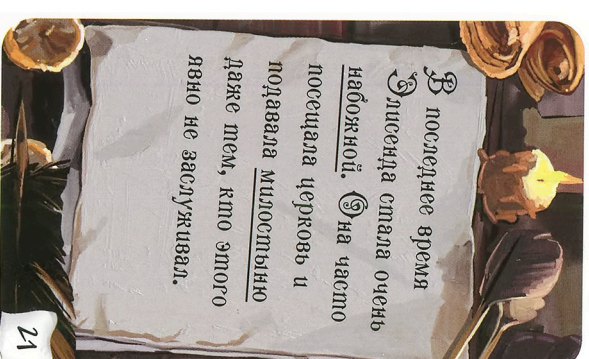 В последнее время
Элисенда стала очень
набожной. Она часто
посещала церковь и
подавала милостыню
даже тем, кто этого
явно не заслуживал.
21